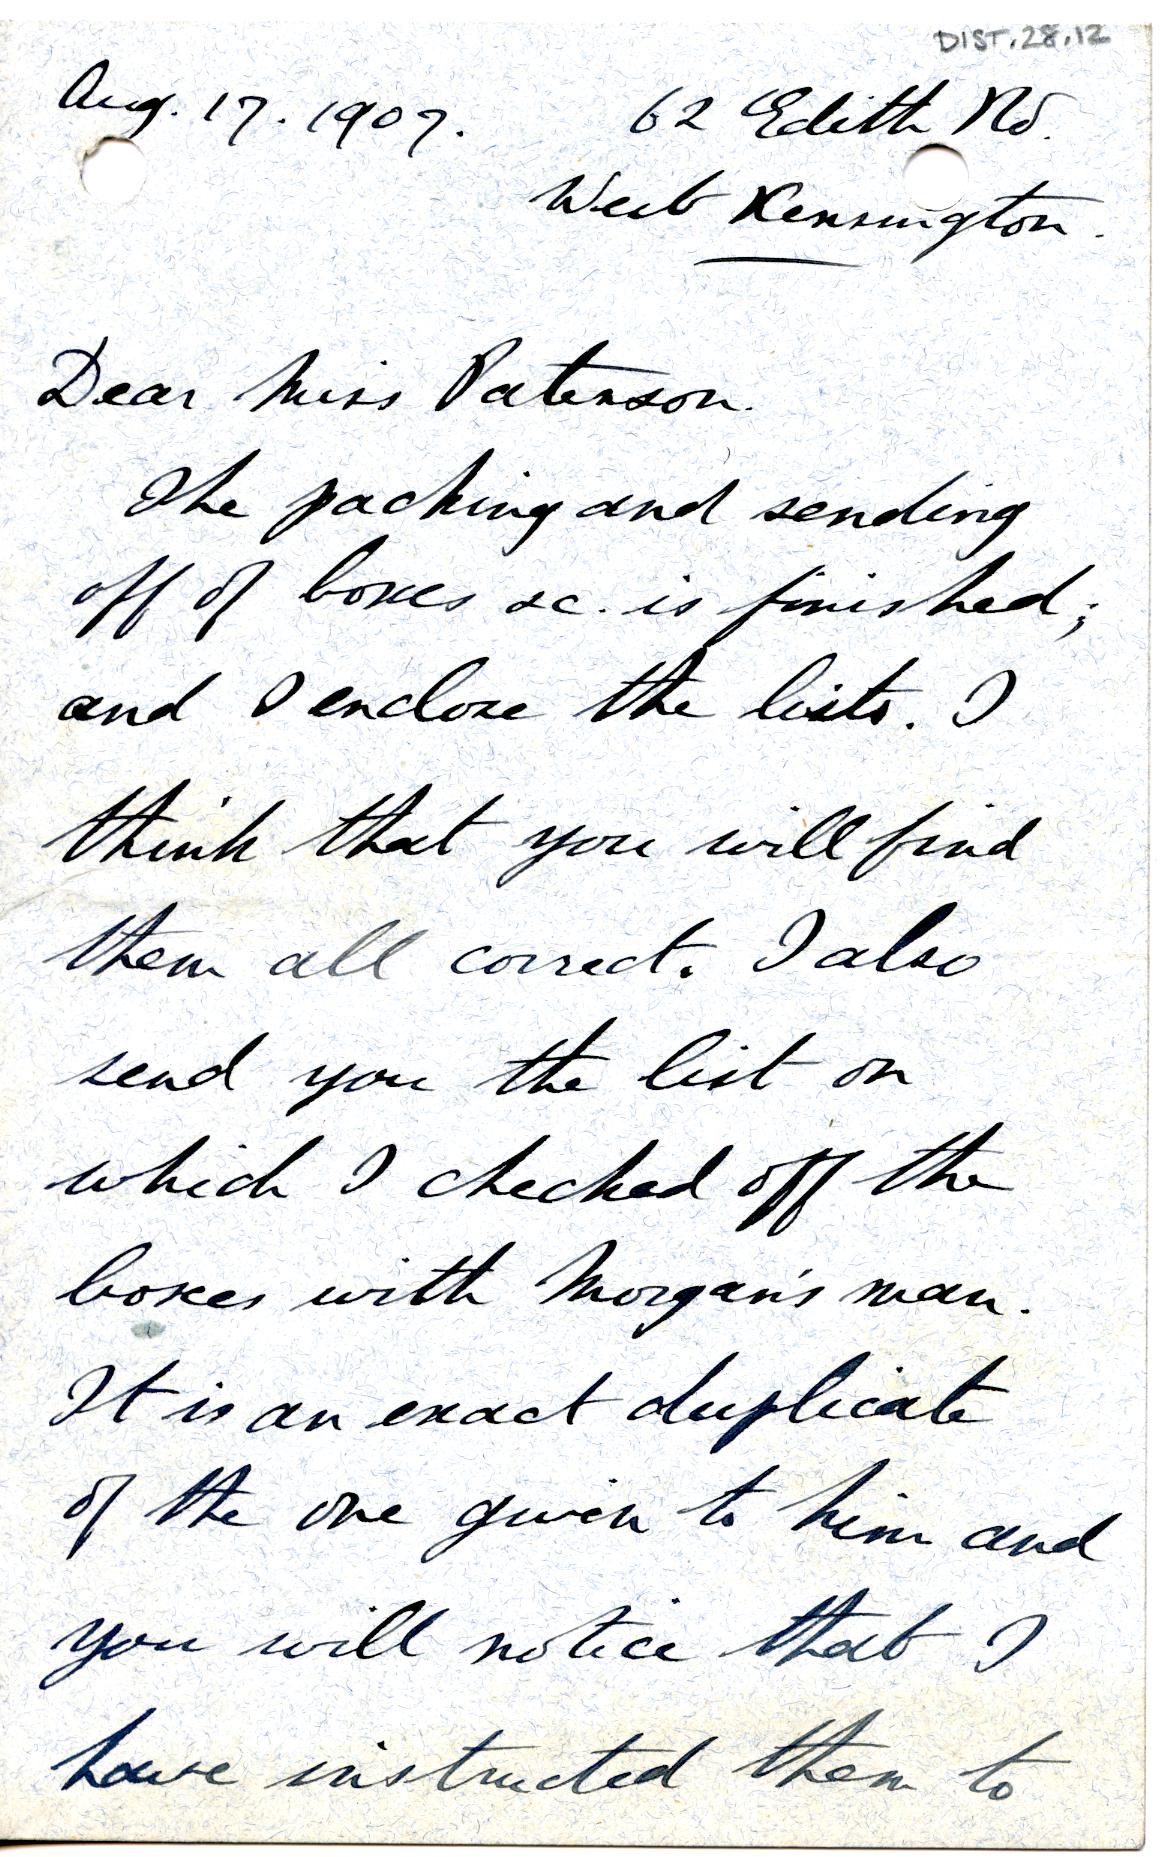 DIST.28.12
Aug. 17. 1907. 62 Edith Rd.
West Kensington.
Dear Miss Paterson.
The packing and sending
off of boxes &c. is finished;
and I enclose the lists. I
think that you will find
them all correct. I also
send you the list on
which I checked off the
boxes with Morgan's man.
It is an exact duplicate
of the one given to him and
you will notice that I
have instructed them to